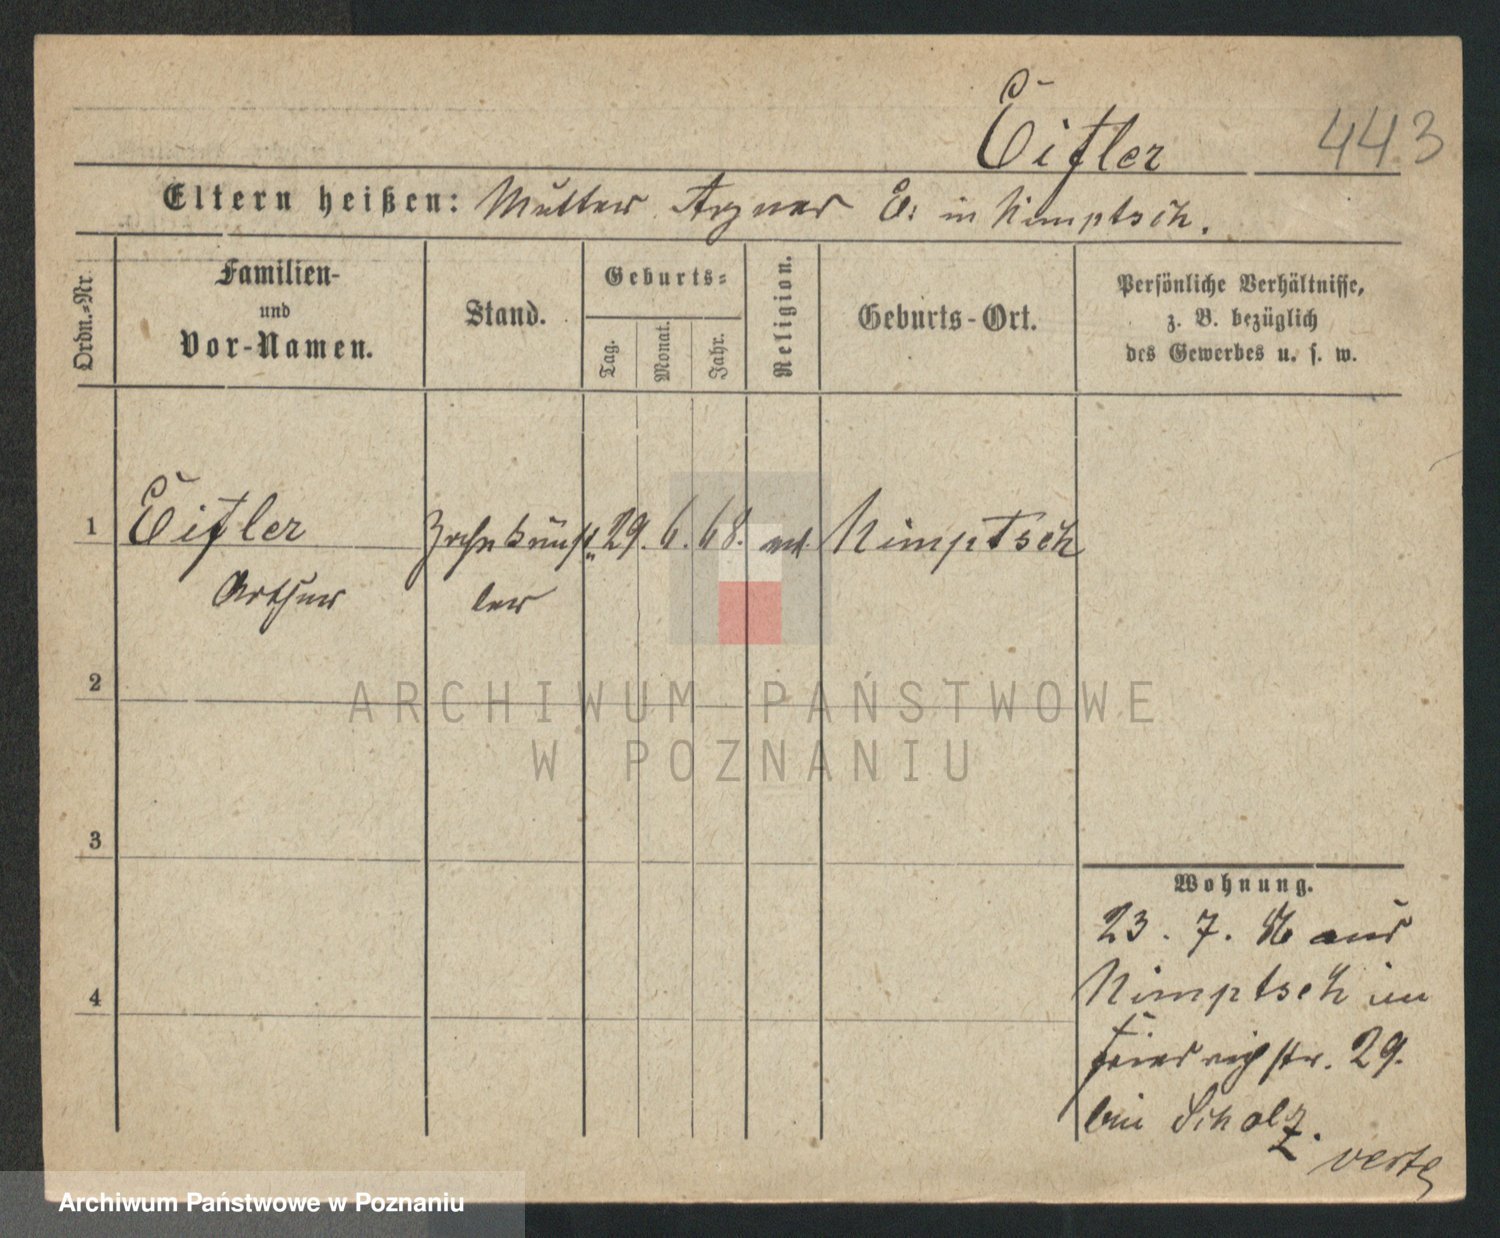 Eifler 443
Eltern heißen: Mutter Agnes E. in Nimptsch.
Ordn.-Nr.
Familien-
und
Vor-Namen.
Stand.
Geburts-
Tag.
Monat.
Jahr.
Religion.
Geburts-Ort.
Persönliche Verhältnisse,
z. B. bezüglich
des Gewerbes u. s. w.
1 Eifler Zahnkünst„ 29. 6. 68. Nimptsch
Arthur ler
2
3
4
Wohnung.
23. 7. aus
Nimptsch in
Friedrichstr. 29.
bei Scholz.
verte
ARCHIWUM PAŃSTWOWE
W POZNANIU
Archiwum Państwowe w Poznaniu